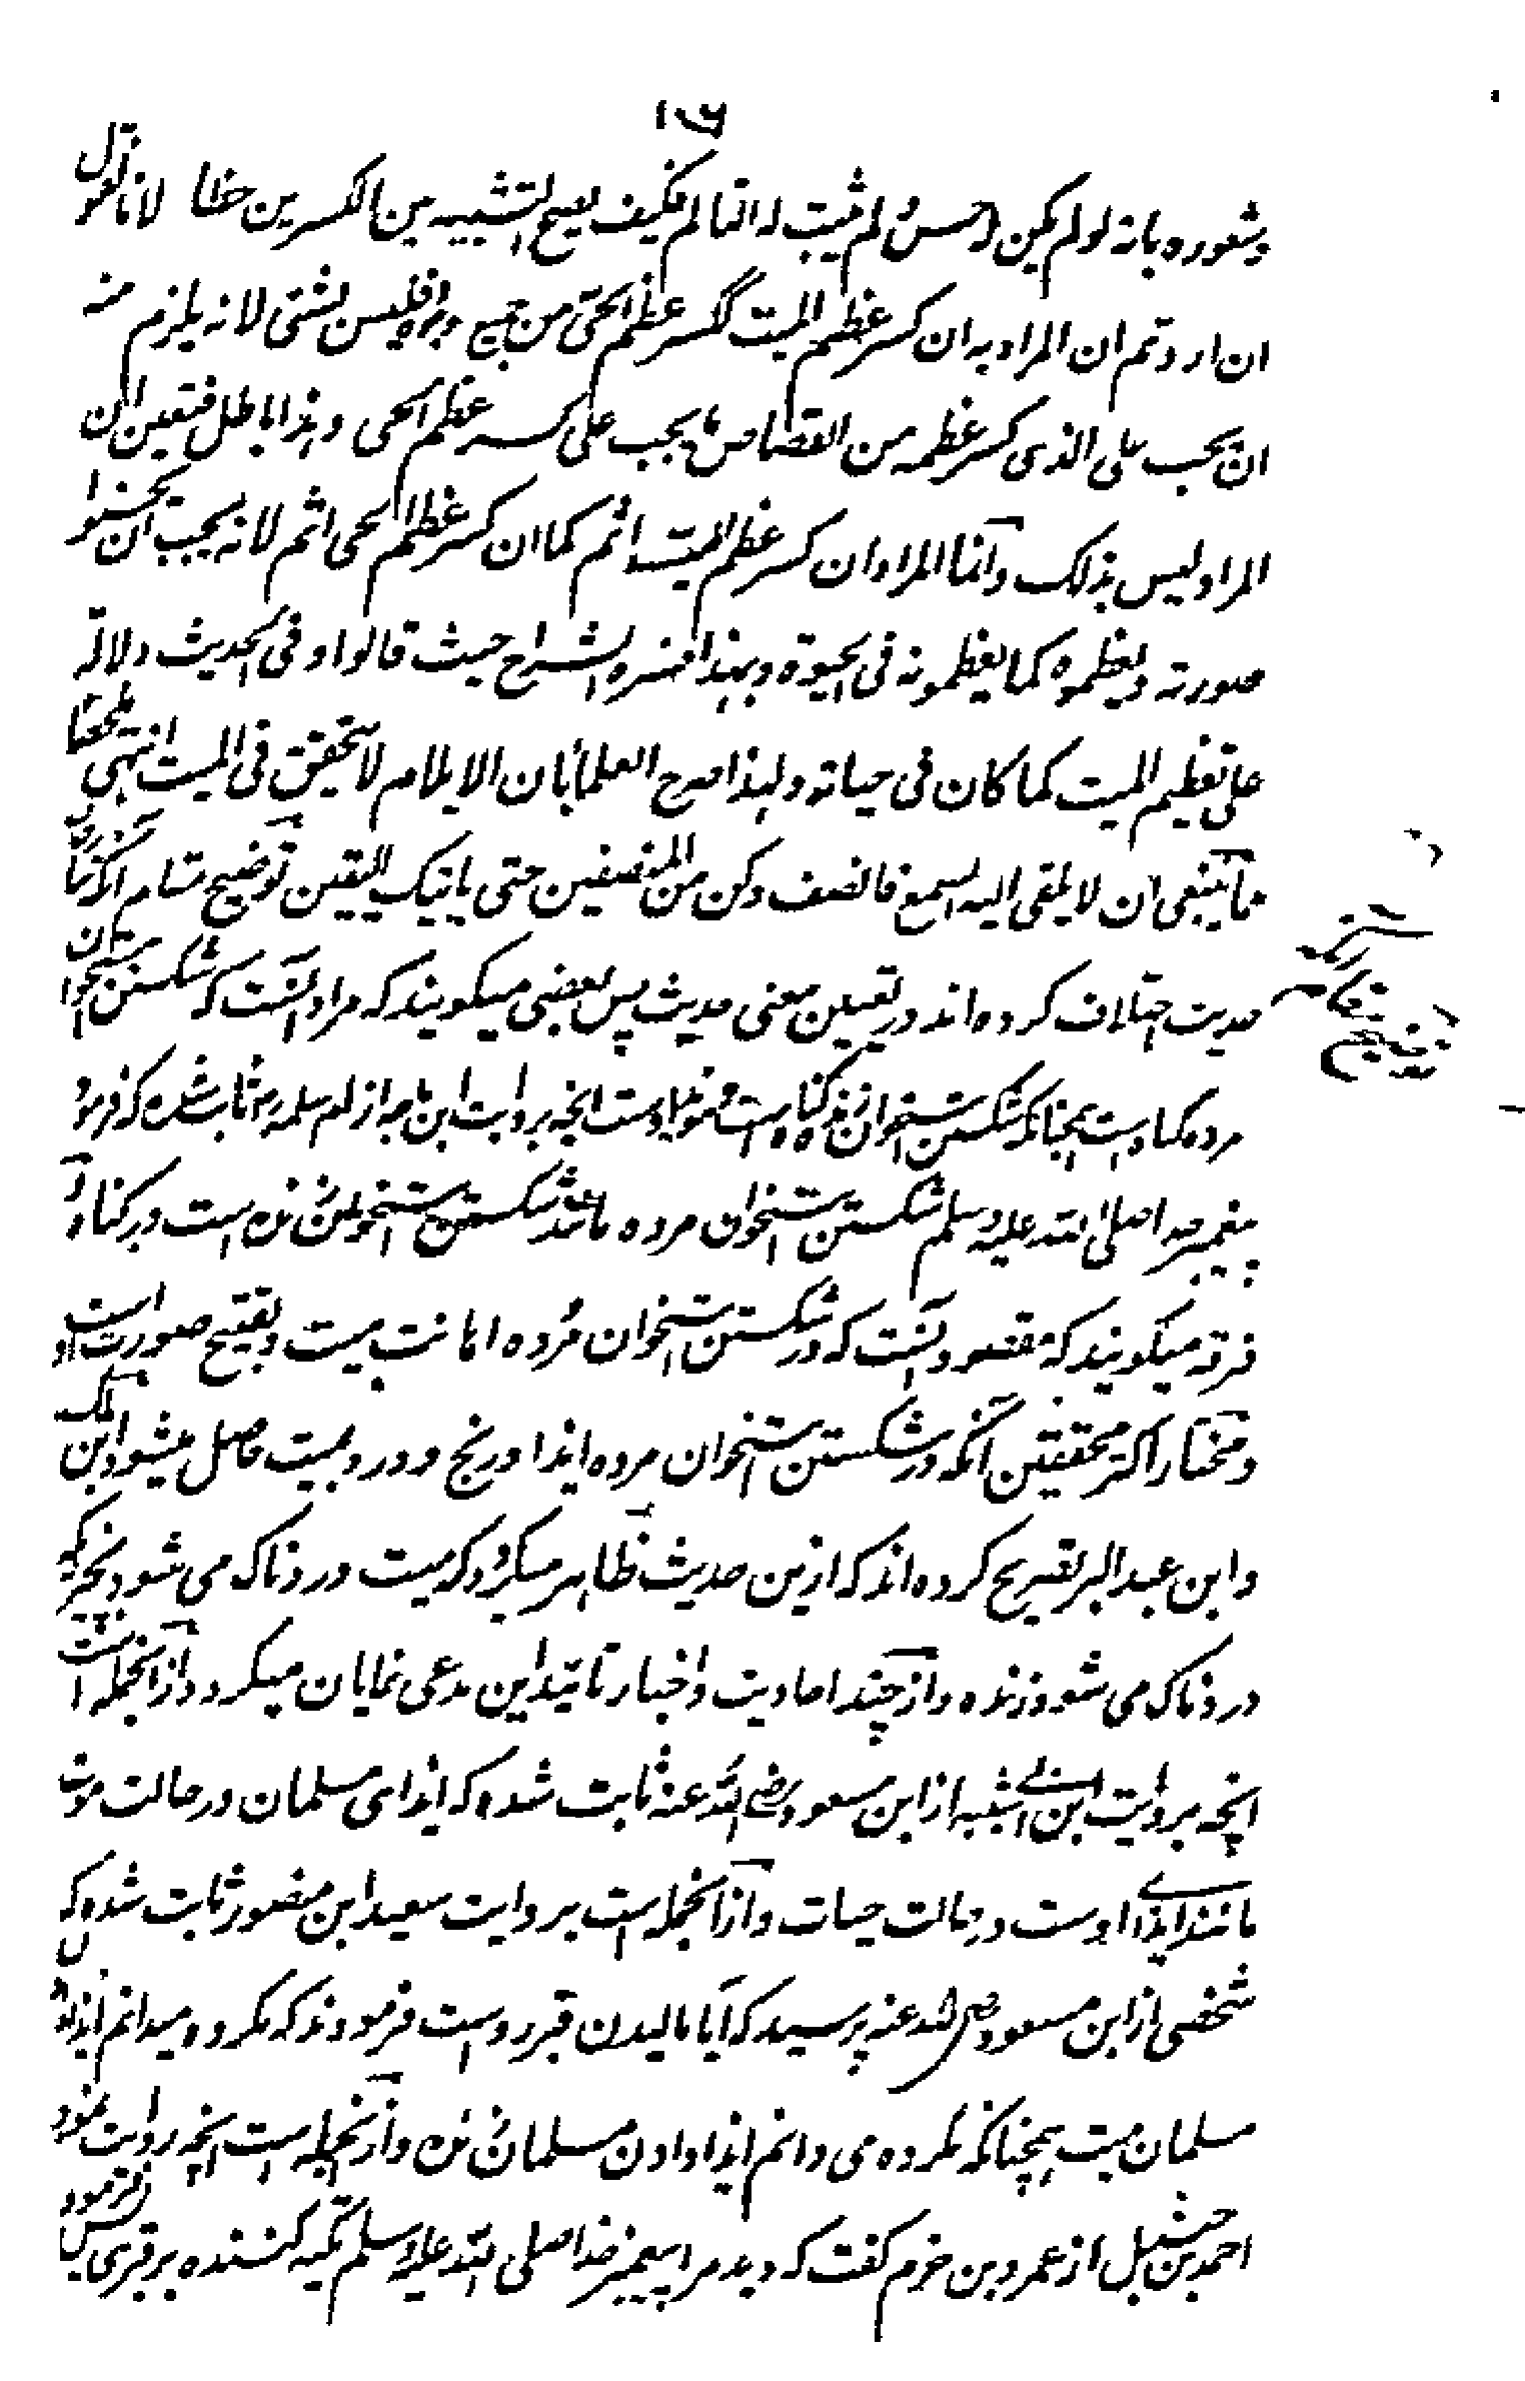 ۱۷۶
وشعوره بانه لو لم یکن له حس ولم یثبت له التالم فکیف یصح التشبیه بین الکسرین خطا لانا نقول
ان اردتم ان المراد به ان کسر عظم المیت ککسر عظم الحی من جمیع وجوه فلیس بشئ لانه یلزم منه
ان یجب علی الذی کسر عظمه من القصاص ما یجب علی کسر عظم الحی وهذا باطل فتعین ان
المراد لیس بذلک وانما المراد ان کسر عظم المیت اثم کما ان کسر عظم الحی اثم لانه یجب ان
صورته ویعظموه کما یعظمونه فی الحیوة وبهذا فسره الشراح حیث قالوا وفی الحدیث دلالة
علی تعظیم المیت کما کان فی حیاته ولهذا صرح العلماء بان الایلام لا یتحقق فی المیت انتهی ملخصا
مما ینبغی ان لا یلقی الیه السمع فانصف وکن من المنصفین حتی یاتیک الیقین توضیح مقام آنکه
حدیث اختلاف کرده اند در تعیین معنی حدیث پس بعضی میگویند که مراد اینست که شکستن استخوان
مرده گناه است همچنانکه شکستن استخوان زنده گناه است و موید اوست انچه بروایت ابن ماجه از ام سلمه رض ثابت شده که فرمود
پیغمبر خدا صلی الله علیه وسلم شکستن استخوان مرده مانند شکستن استخوان زنده است در گناه و
فرقه میگویند که مقصود اینست که در شکستن استخوان مرده اهانت میت و تقبیح صورت او است
و مختار اکثر محققین آنکه در شکستن استخوان مرده ایذا و رنج و درد بمیت حاصل میشود ابن ملک
وابن عبد البر تصریح کرده اند که ازین حدیث ظاهر میگردد که میت دردناک می شود بچیزیکه
دردناک می شود زنده و از چند احادیث و اخبار تائید این مدعی نمایان میگردد و از انجمله است
انچه بروایت ابن ابی شیبه از ابن مسعود رضی الله عنه ثابت شده که ایذای مسلمان در حالت موت
مانند ایذای اوست در حالت حیات و از انجمله است بروایت سعید ابن منصور ثابت شده که
شخصی از ابن مسعود رضی الله عنه پرسید که آیا مالیدن قبر رواست فرمودند که مکروه میدانم ایذای
مسلمان میت همچنانکه مکروه می دانم ایذا دادن مسلمان زنده و از انجمله است انچه روایت نمود
احمد بن حنبل از عمرو بن حزم گفت که دید مرا پیغمبر خدا صلی الله علیه وسلم تکیه کننده بر قبری پس فرمود